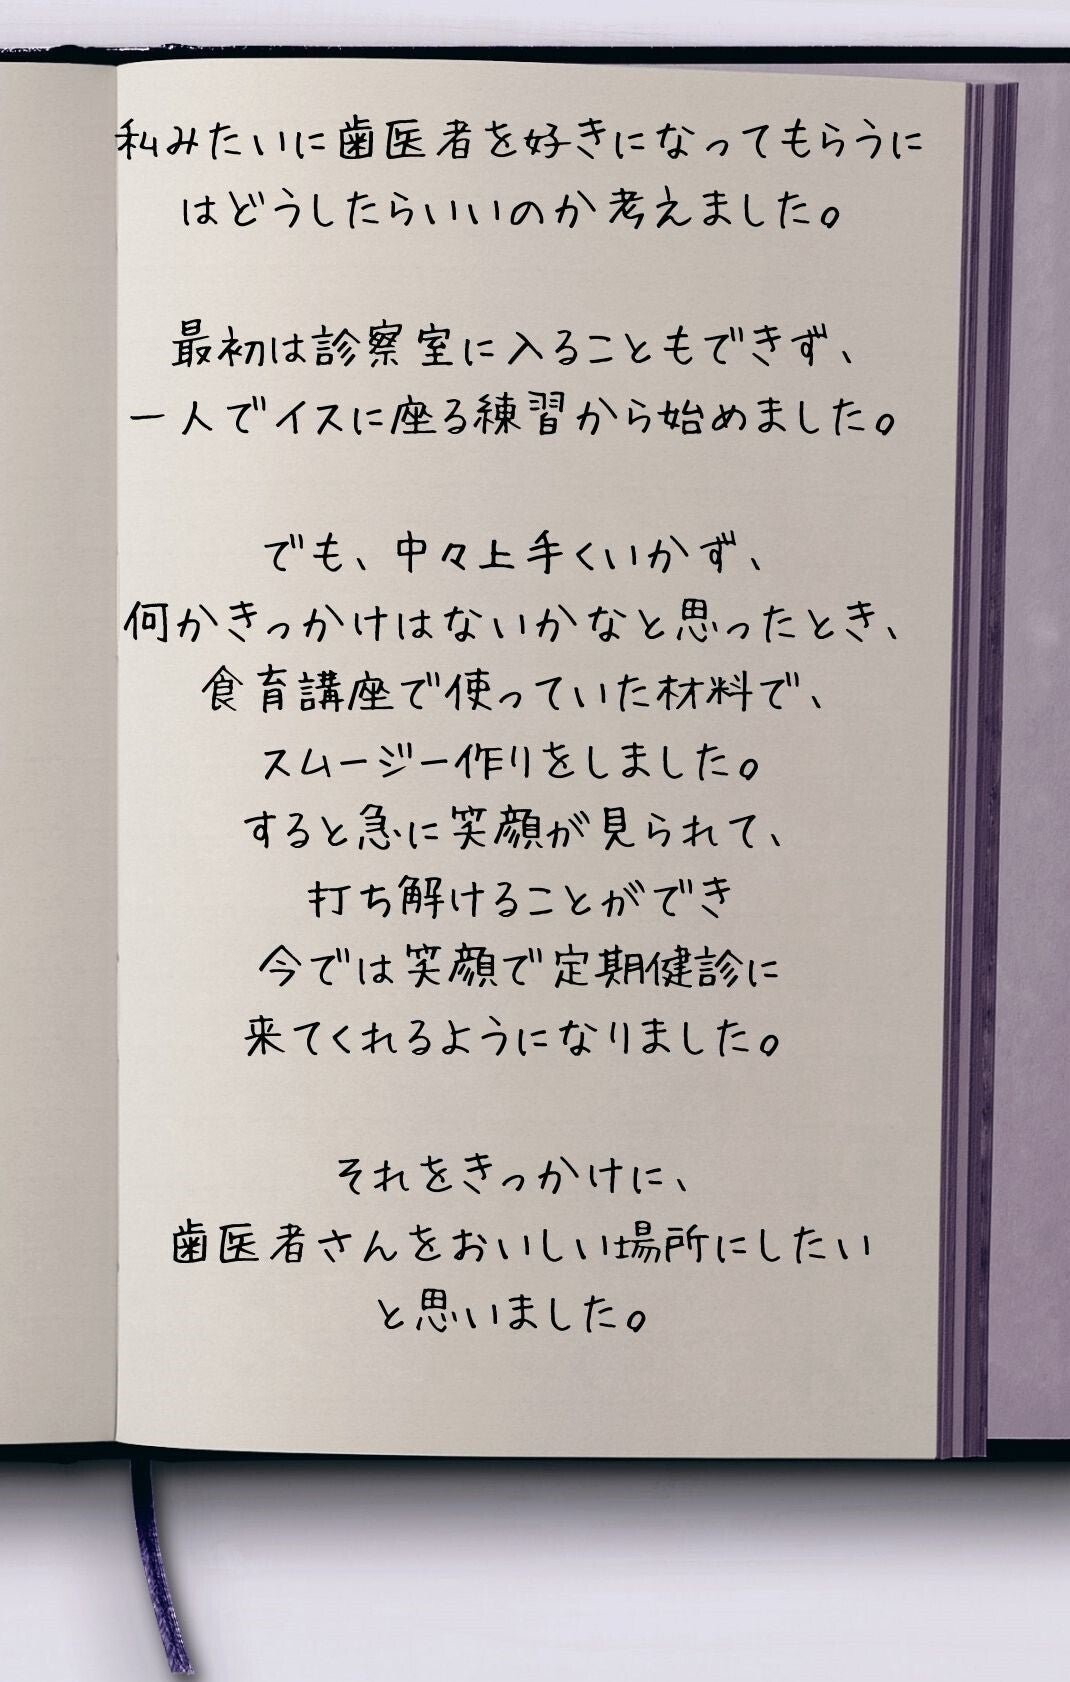 私みたいに歯医者を好きになってもらうに
はどうしたらいいのか考えました。
最初は診察室に入ることもできず、
一人でイスに座る練習から始めました。
でも、中々上手くいかず、
何かきっかけはないかなと思ったとき、
食育講座で使っていた材料で、
スムージー作りをしました。
すると急に笑顔が見られて、
打ち解けることができ
今では笑顔で定期健診に
来てくれるようになりました。
それをきっかけに、
歯医者さんをおいしい場所にしたい
と思いました。